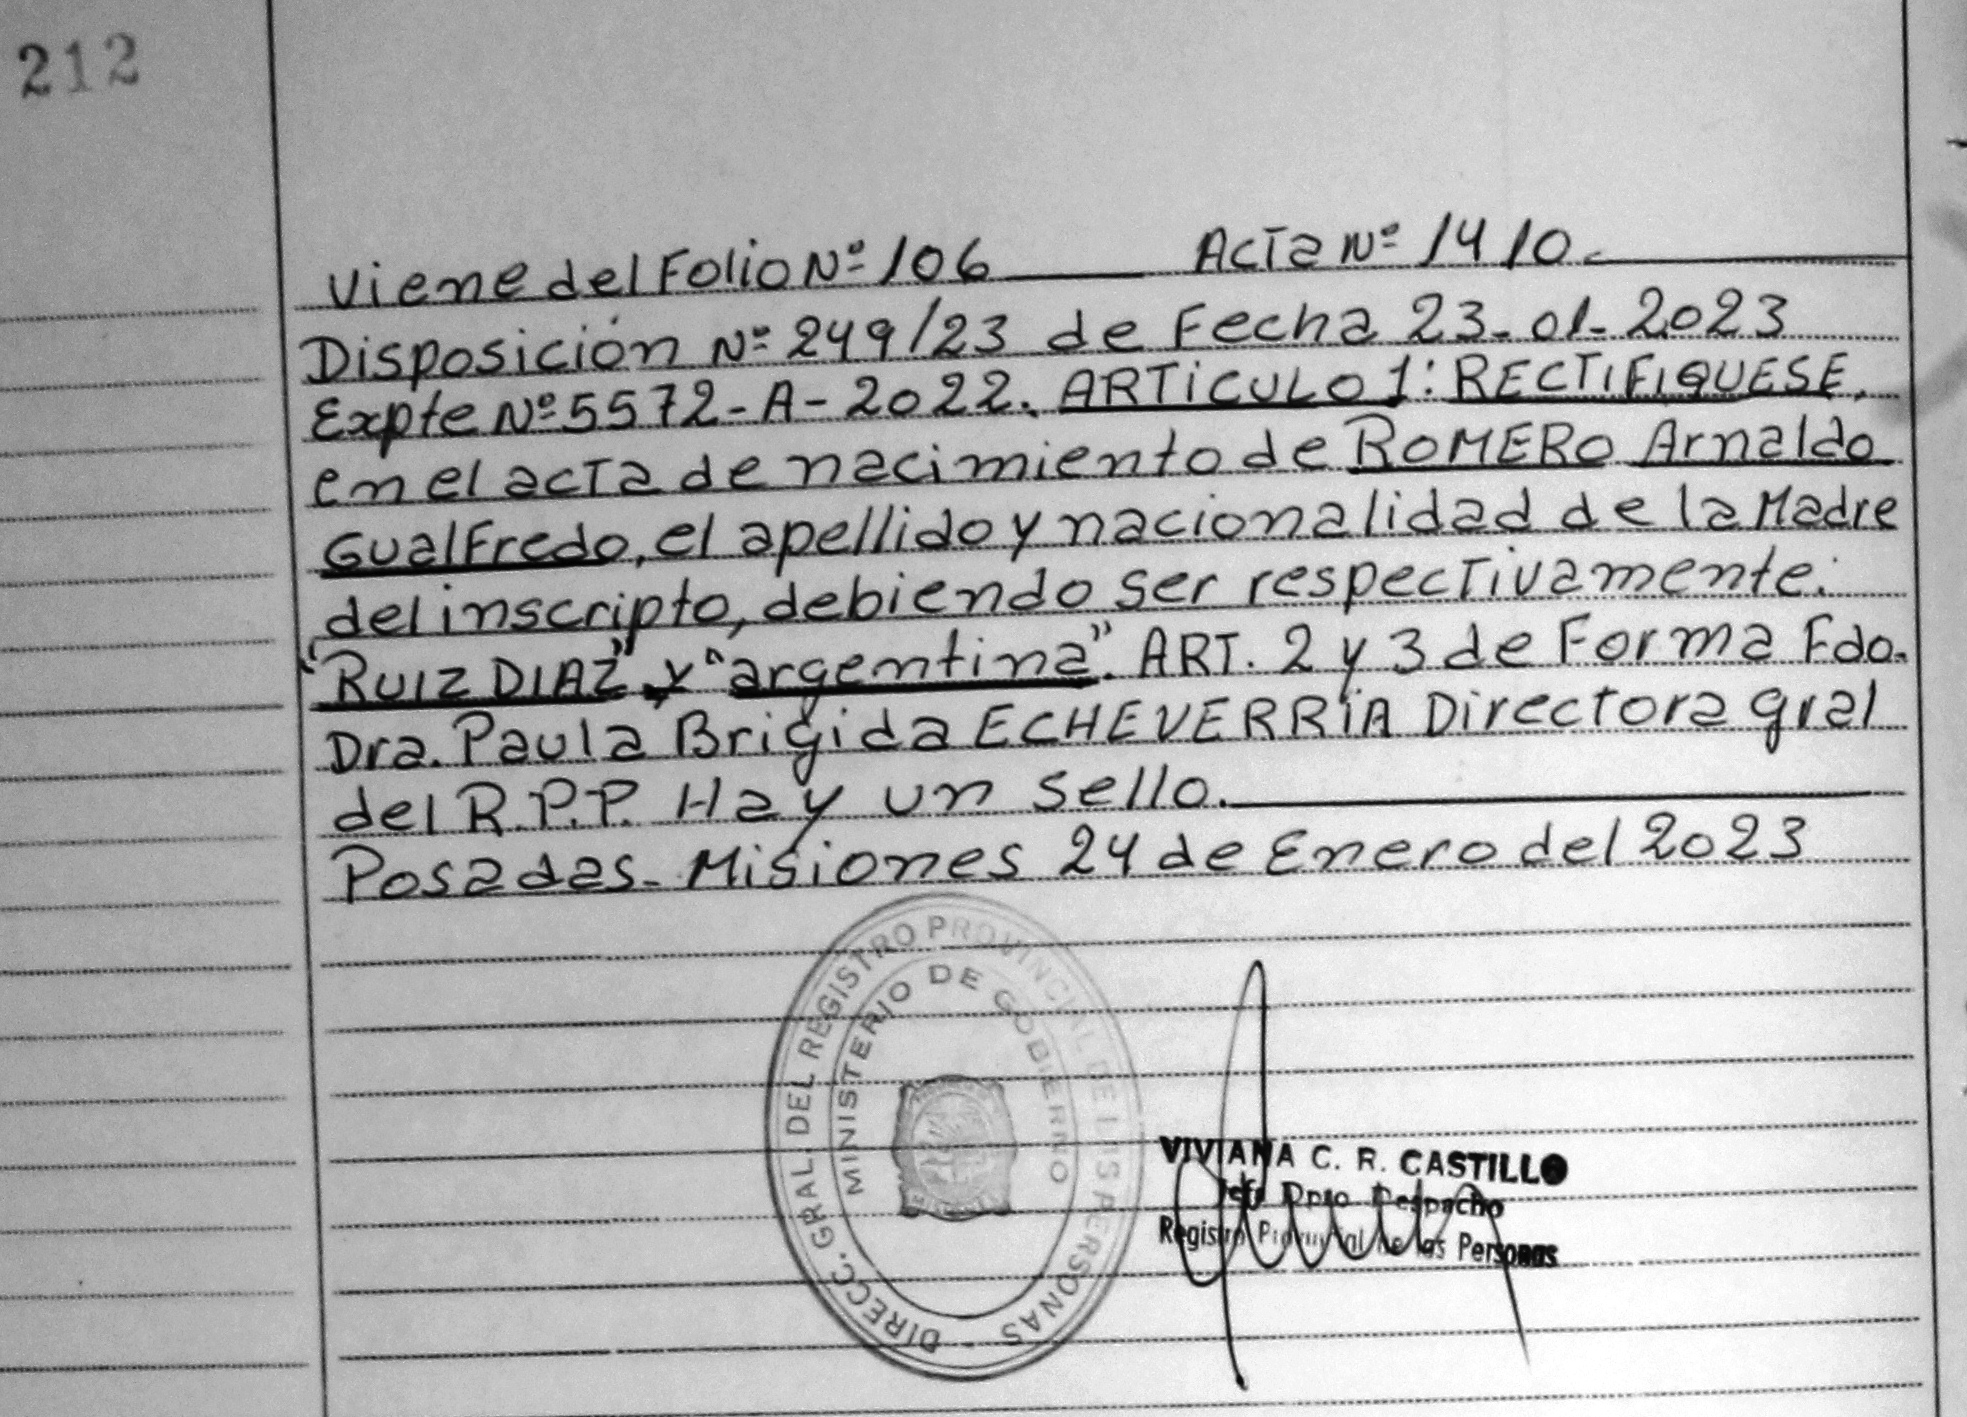 212
Viene del Folio Nº 106 Acta Nº 1410.
Disposición Nº 249/23 de Fecha 23-01-2023
Expte Nº 5572-A-2022. ARTICULO 1: RECTIFIQUESE,
en el acta de nacimiento de ROMERO Arnaldo
Gualfredo, el apellido y nacionalidad de la Madre
del inscripto, debiendo ser respectivamente:
"RUIZ DIAZ" y "argentina". ART. 2 y 3 de Forma Fdo.
Dra. Paula Brigida ECHEVERRÍA Directora gral
del R.P.P. Hay un sello.
Posadas - Misiones 24 de Enero del 2023
DIRECC. GRAL. DEL REGISTRO PROVINCIAL DE LAS PERSONAS
MINISTERIO DE GOBIERNO
VIVIANA C. R. CASTILLO
Jefe Dpto Despacho
Registro Provincial de las Personas